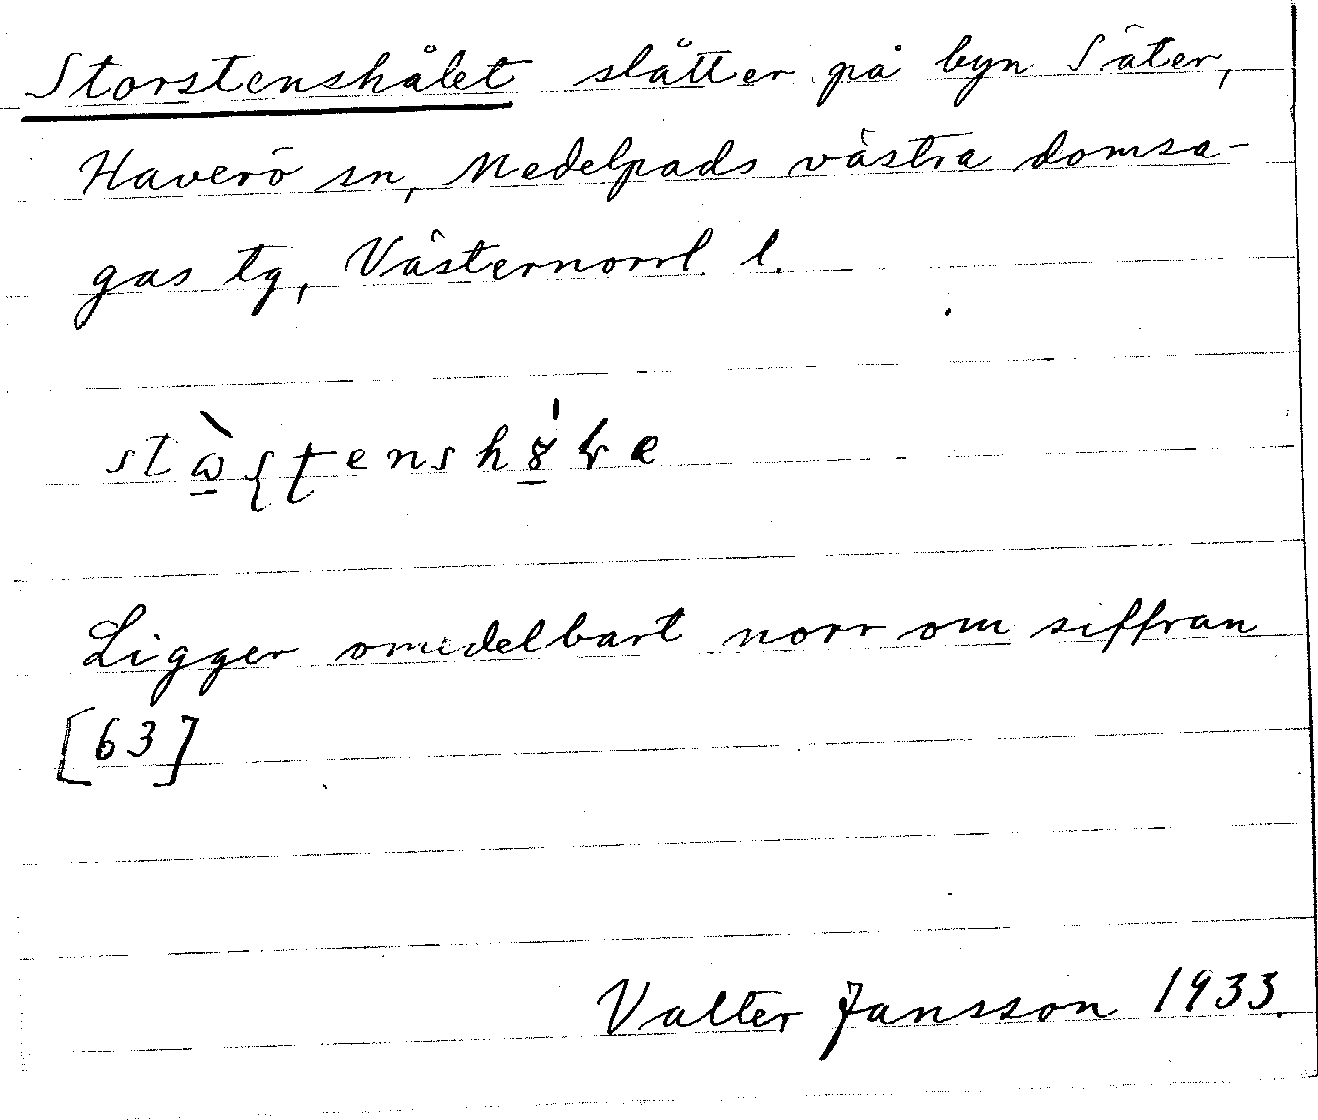 Storstenshålet slåtter på byn Säter,
Haverö sn, Medelpads västra domsa-
gas tg, Västernorrl. l.
Ligger omedelbart norr om siffran
[63]
Valter Jansson 1933.